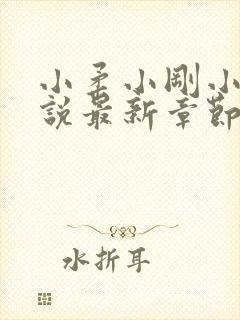 小矛小剛小
說最新章節
水折耳